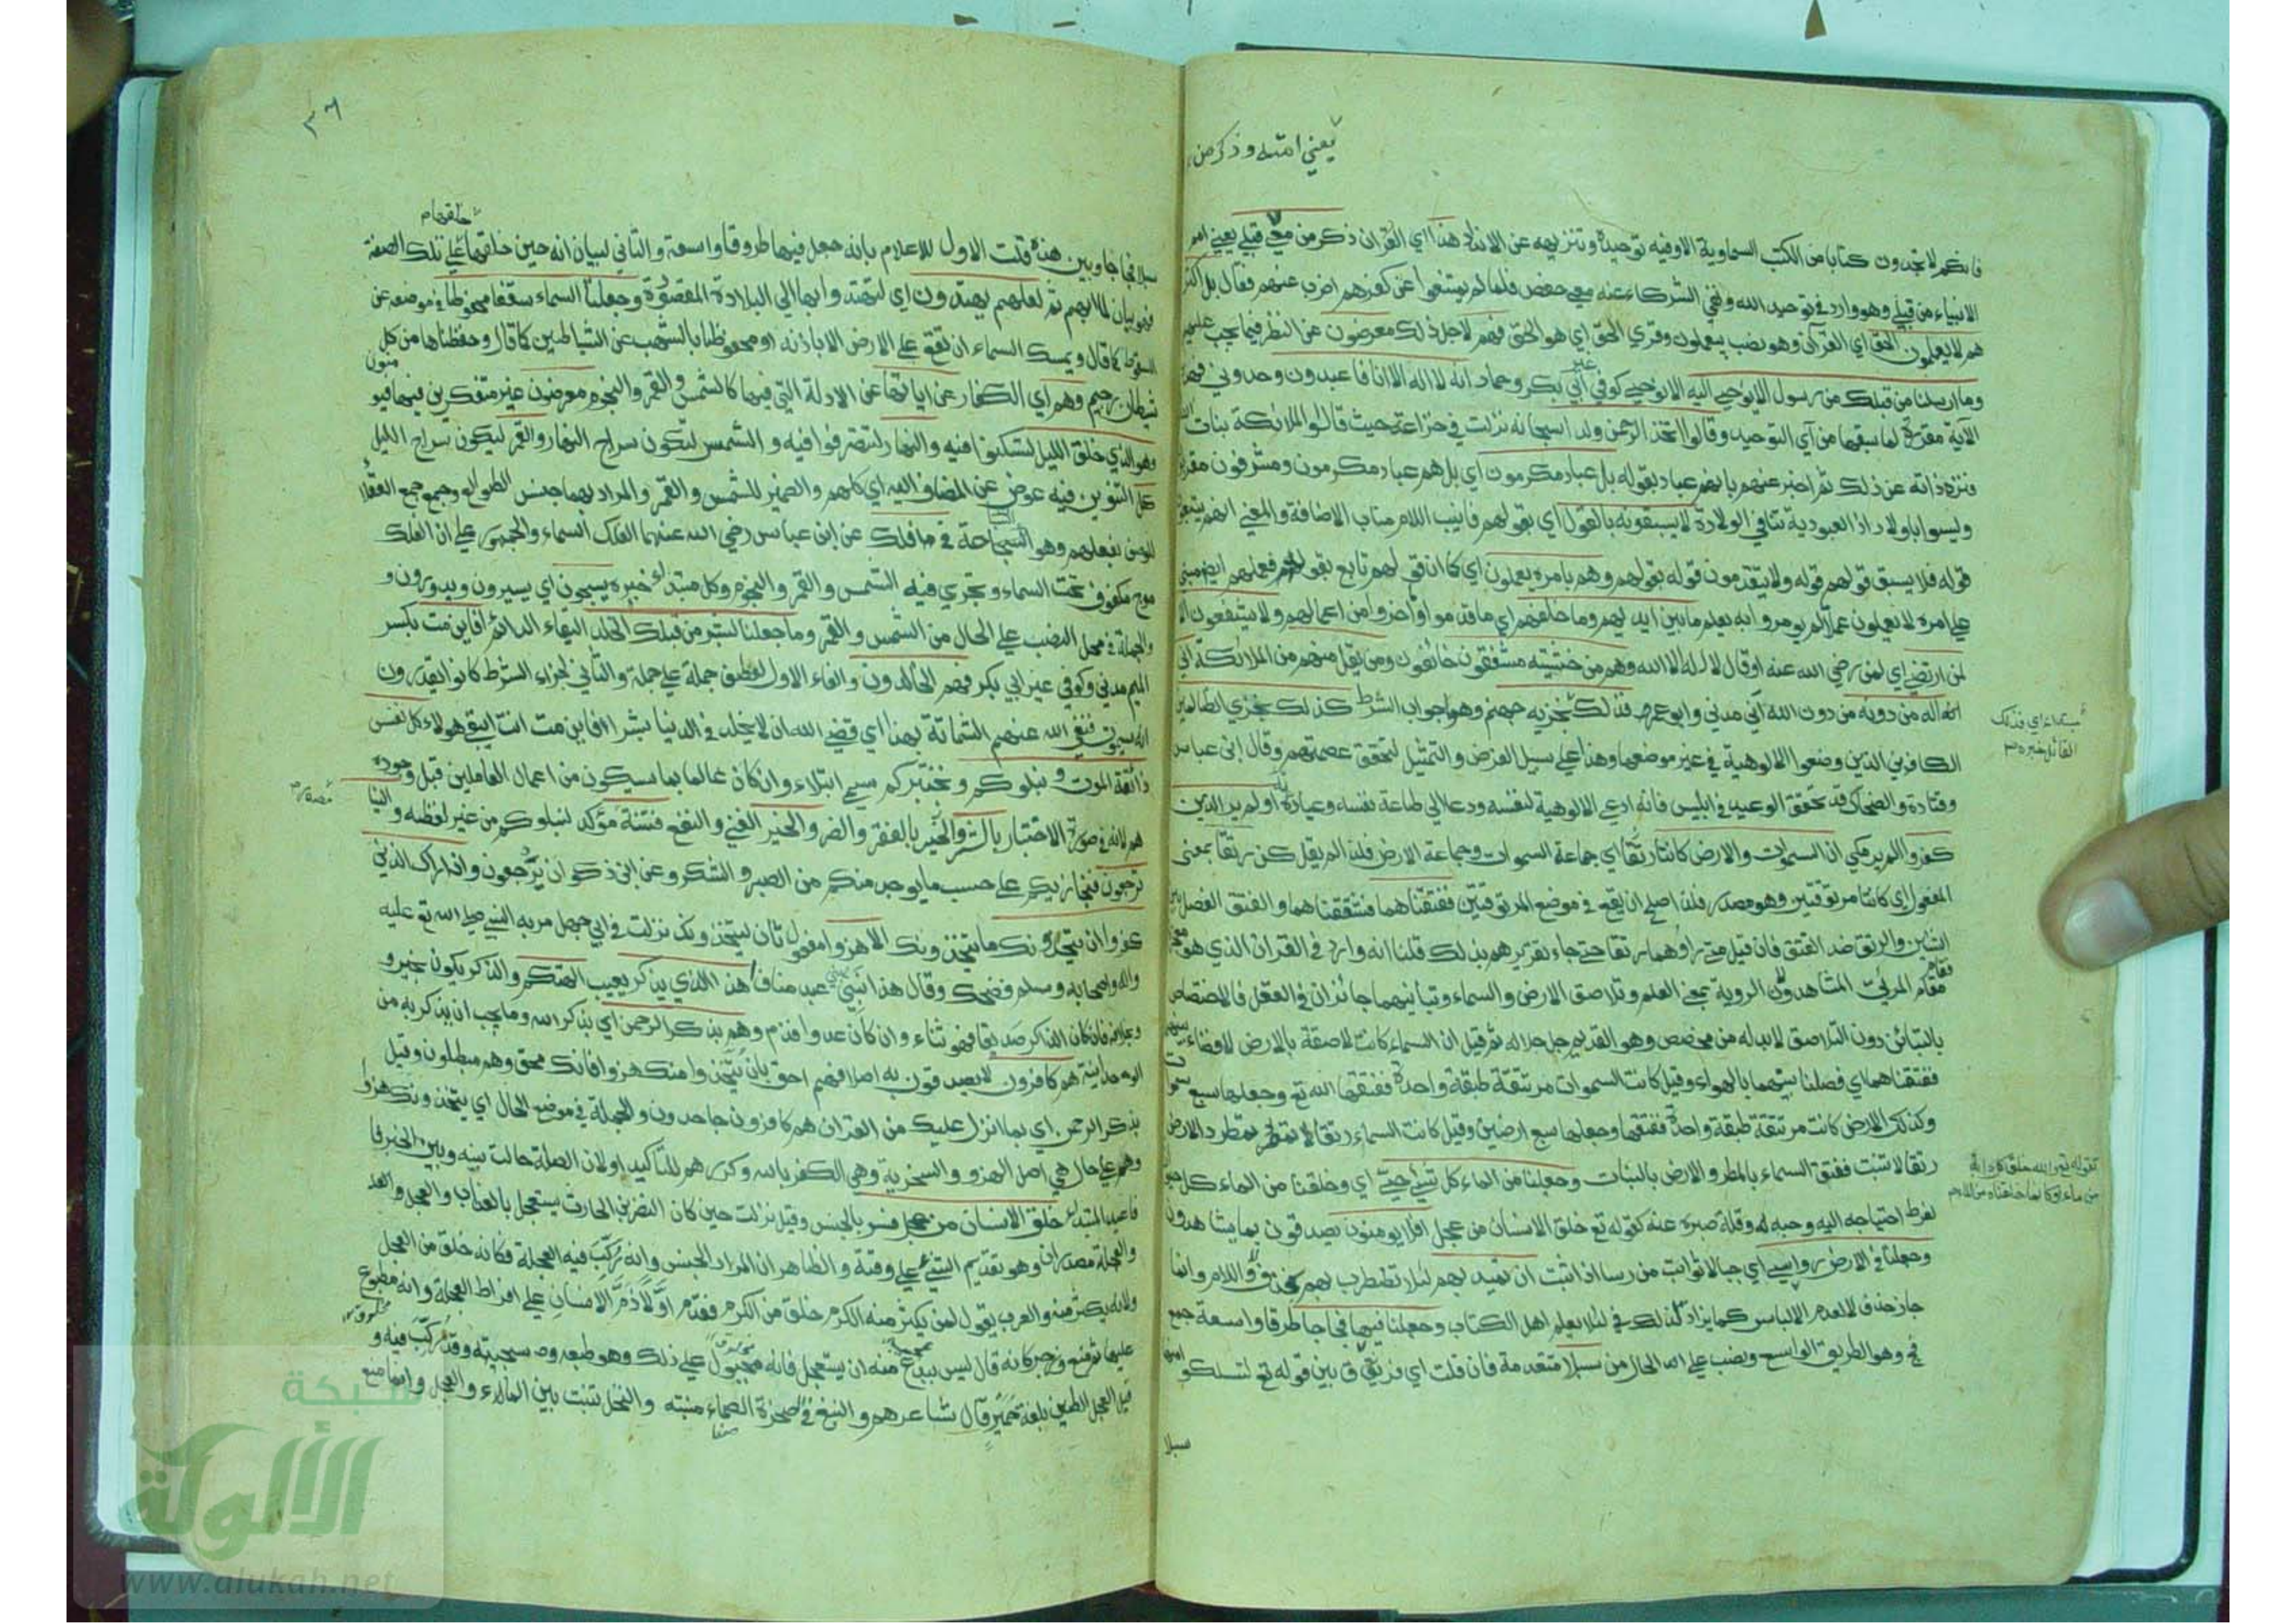 يعني امته وذكر من
فانكم لا تجدون كتابا من الكتب السماوية الا وفيه توحيده وتنزيهه عن الانداد هذا اي القرآن ذكر من معي وذكر من قبلي يعني امم
الانبياء من قبلي وهو وارد في توحيد الله ونفي الشركاء عنه معي حفص فلما لم يمتنعوا عن كفرهم اضرب عنهم فقال بل اكثر
هم لا يعلمون الحق اي القرآن وهو نصب بيعلمون وقري الحق اي هو الحق فهم لاجل ذلك معرضون عن النظر فيما يجب عليهم
وما ارسلنا من قبلك من رسول الا يوحي اليه الا نوحي كوفي غير ابي بكر وحماد انه لا اله الا انا فاعبدون وحدوني فهذه
الآية مقررة لما سبقها من آي التوحيد وقالوا اتخذ الرحمن ولدا سبحانه نزلت في خزاعة حيث قالوا الملائكة بنات الله
فنزه ذاته عن ذلك ثم اخبر عنهم بانهم عباد بقوله بل عباد مكرمون اي بل هم عباد مكرمون ومشرفون مقربون
وليسوا باولاد اذ العبودية تنافي الولادة لا يسبقونه بالقول اي بقولهم فانيب اللام مناب الاضافة والمعني انهم يتبعون
قوله فلا يسبق قولهم قوله ولا يتقدمون قوله بقولهم وهم بامره يعملون اي كما ان قولهم تابع بقوله فعملهم ايضا مبني
علي امره لا يعملون عملا لم يومروا به يعلم ما بين ايديهم وما خلفهم اي ما قدموا واخروا من اعمالهم ولا يشفعون الا
لمن ارتضي اي لمن رضي الله عنه او قال لا اله الا الله وهم من خشيته مشفقون خائفون ومن يقل منهم من الملائكة اني
اله من دونه من دون الله اني مدني وابو عمرو فذلك نجزيه جهنم وهو جواب الشرط كذلك نجزي الظالمين
مبتداء اي فذلك
القائل خبره
الكافرين الذين وضعوا الالوهية في غير موضعها وهذا علي سبيل الفرض والتمثيل لتحقق عصمتهم وقال ابن عباس
وقتادة والضحاك قد تحقق الوعيد في ابليس فانه ادعي الالوهية لنفسه ودعا الي طاعة نفسه وعبادته اولم ير الذين
كفروا الم ير مكي ان السموات والارض كانتا رتقا اي جماعة السموات وجماعة الارض فلذا لم يقل كن رتقا بمعني
المفعول اي كانتا مرتوقتين وهو مصدر فلذا صلح ان يقع في موضع المرتوقتين ففتقناهما فشققناهما والفتق الفصل بين
الشيئين والرتق ضد الفتق فان قيل متي راوهما رتقا حتي جاء تقريرهم بذلك قلنا انه وارد في القرآن الذي هو معجزة
فقام مقام المرئي المشاهد ولان الروية بمعني العلم وتلاصق الارض والسماء وتباينهما جائزان في العقل فالاختصاص
بالتباين دون التلاصق لابد له من مخصص وهو القديم جل جلاله ثم قيل ان السماء كانت لاصقة بالارض لا فضاء بينهما
ففتقناهما اي فصلنا بينهما بالهواء وقيل كانت السموات مرتتقة طبقة واحدة ففتقها الله تع وجعلها سبع سموات
وكذلك الارض كانت مرتتقة طبقة واحدة ففتقها وجعلها سبع ارضين وقيل كانت السماء رتقا لا تمطر والارض
رتقا لا تنبت ففتق السماء بالمطر والارض بالنبات وجعلنا من الماء كل شيء حي اي وخلقنا من الماء كل حيوان
كقوله تع والله خلق كل دابة
من ماء او كانما خلقناه من الماء
لفرط احتياجه اليه وحبه له وقلة صبره عنه كقوله تع خلق الانسان من عجل افلا يومنون يصدقون بما يشاهدون
وجعلنا في الارض رواسي اي جبالا ثوابت من رسا اذا ثبت ان تميد بهم لئلا تضطرب بهم فحذف لا واللام وانما
جاز حذف لا لعدم الالباس كما يزاد لذلك في لئلا يعلم اهل الكتاب وجعلنا فيها فجاجا طرقا واسعة جمع
فج وهو الطريق الواسع ونصب علي الحال من سبلا متقدمة فان قلت اي فرق بين قوله تع لتسلكوا منها
سبلا
٣٦
سبلا فجاجا وبين هذه قلت الاول للاعلام بانه جعل فيها طرقا واسعة والثاني لبيان انه حين خلقها خلقها علي تلك الصفة
فهو بيان لما ابهم ثم لعلهم يهتدون اي ليهتدوا بها الي البلاد المقصودة وجعلنا السماء سقفا محفوظا في موضعه عن
السقوط كما قال ويمسك السماء ان تقع علي الارض الا باذنه او محفوظا بالشهب عن الشياطين كما قال وحفظناها من كل
شيطان رجيم وهم اي الكفار عن آياتها عن الادلة التي فيها كالشمس والقمر والنجوم معرضون غير متفكرين فيها فيومنون
وهو الذي خلق الليل لتسكنوا فيه والنهار لتتصرفوا فيه والشمس لتكون سراج النهار والقمر ليكون سراج الليل
كل التنوين فيه عوض عن المضاف اليه اي كلهم والضمير للشمس والقمر والمراد بهما جنس الطوالع وجمع جمع العقلاء
للوصف بفعلهم وهو السباحة في فلك عن ابن عباس رضي الله عنهما الفلك السماء والجمهور علي ان الفلك
موج مكفوف تحت السماء وتجري فيه الشمس والقمر والنجوم وكل مبتداء خبره يسبحون اي يسيرون ويدورون و
والجملة في محل النصب علي الحال من الشمس والقمر وما جعلنا لبشر من قبلك الخلد البقاء الدائم افاين مت بكسر
الميم مدني وكوفي غير ابي بكر فهم الخالدون والفاء الاول لعطف جملة علي جملة والثاني لجزاء الشرط كانوا يقدرون
انه سيموت فنفي الله عنهم الشماتة بهذا اي قضي الله ان لا يخلد في الدنيا بشرا افاين مت انت ايبقي هولاء كل نفس
ذائقة الموت ونبلوكم ونختبركم سمي ابتلاء وان كان عالما بما سيكون من اعمال العاملين قبل وجوده
هم لانه في صورة الاختبار بالشر والخير بالفقر والضر والخير الغني والنفع فتنة مؤكد لنبلوكم من غير لفظه والينا
مصدر
ترجعون فنجازيكم علي حسب ما يوجد منكم من الصبر والشكر وعن ابن ذكوان ترجعون واذا رآك الذين
كفروا ان يتخذونك ما يتخذونك الا هزوا مفعول ثان ليتخذونك نزلت في ابي جهل مر به النبي صلي الله تع عليه
واله واصحابه وسلم فضحك وقال هذا نبي بني عبد مناف اهذا الذي يذكر يعيب الهتكم والذكر يكون بخير و
وبخلافه فان كان الذاكر صديقا فهو ثناء وان كان عدوا فذم وهم بذكر الرحمن اي بذكر الله وما يجب ان يذكر به من
الوحدانية هم كافرون لا يصدقون به اصلا فهم احق بان يتخذوا منك هزوا فانك محق وهم مبطلون وقيل
بذكر الرحمن اي بما انزل عليك من القرآن هم كافرون جاحدون والجملة في موضع الحال اي يتخذونك هزوا
وهم علي حال هي اصل الهزو والسخرية وهي الكفر بالله وكرر هم للتأكيد او لان الصلة حالت بينه وبين الخبر فا
فاعيد المبتداء خلق الانسان من عجل فسر بالجنس وقيل نزلت حين كان النضر بن الحارث يستعجل بالعذاب والعجل والعجلة
والعجلة مصدران وهو تقديم الشيء علي وقته والظاهر ان المراد الجنس وانه ركب فيه العجلة فكانه خلق من العجل
ولانه يكثر منه والعرب يقول لمن يكثر منه الكرم خلق من الكرم فقدم اولا ذم الانسان علي افراط العجلة وانه مطبوع
عليها ثم منع وزجر كانه قال ليس ببدع منه ان يستعجل فانه مجبول علي ذلك وهو طبعه وسجيته وقد ركب فيه و
قيل العجل الطين بلغة حمير قال شاعرهم والنبع في الصخرة الصماء منبته والنخل تنبت بين الماء والعجل وانما منع